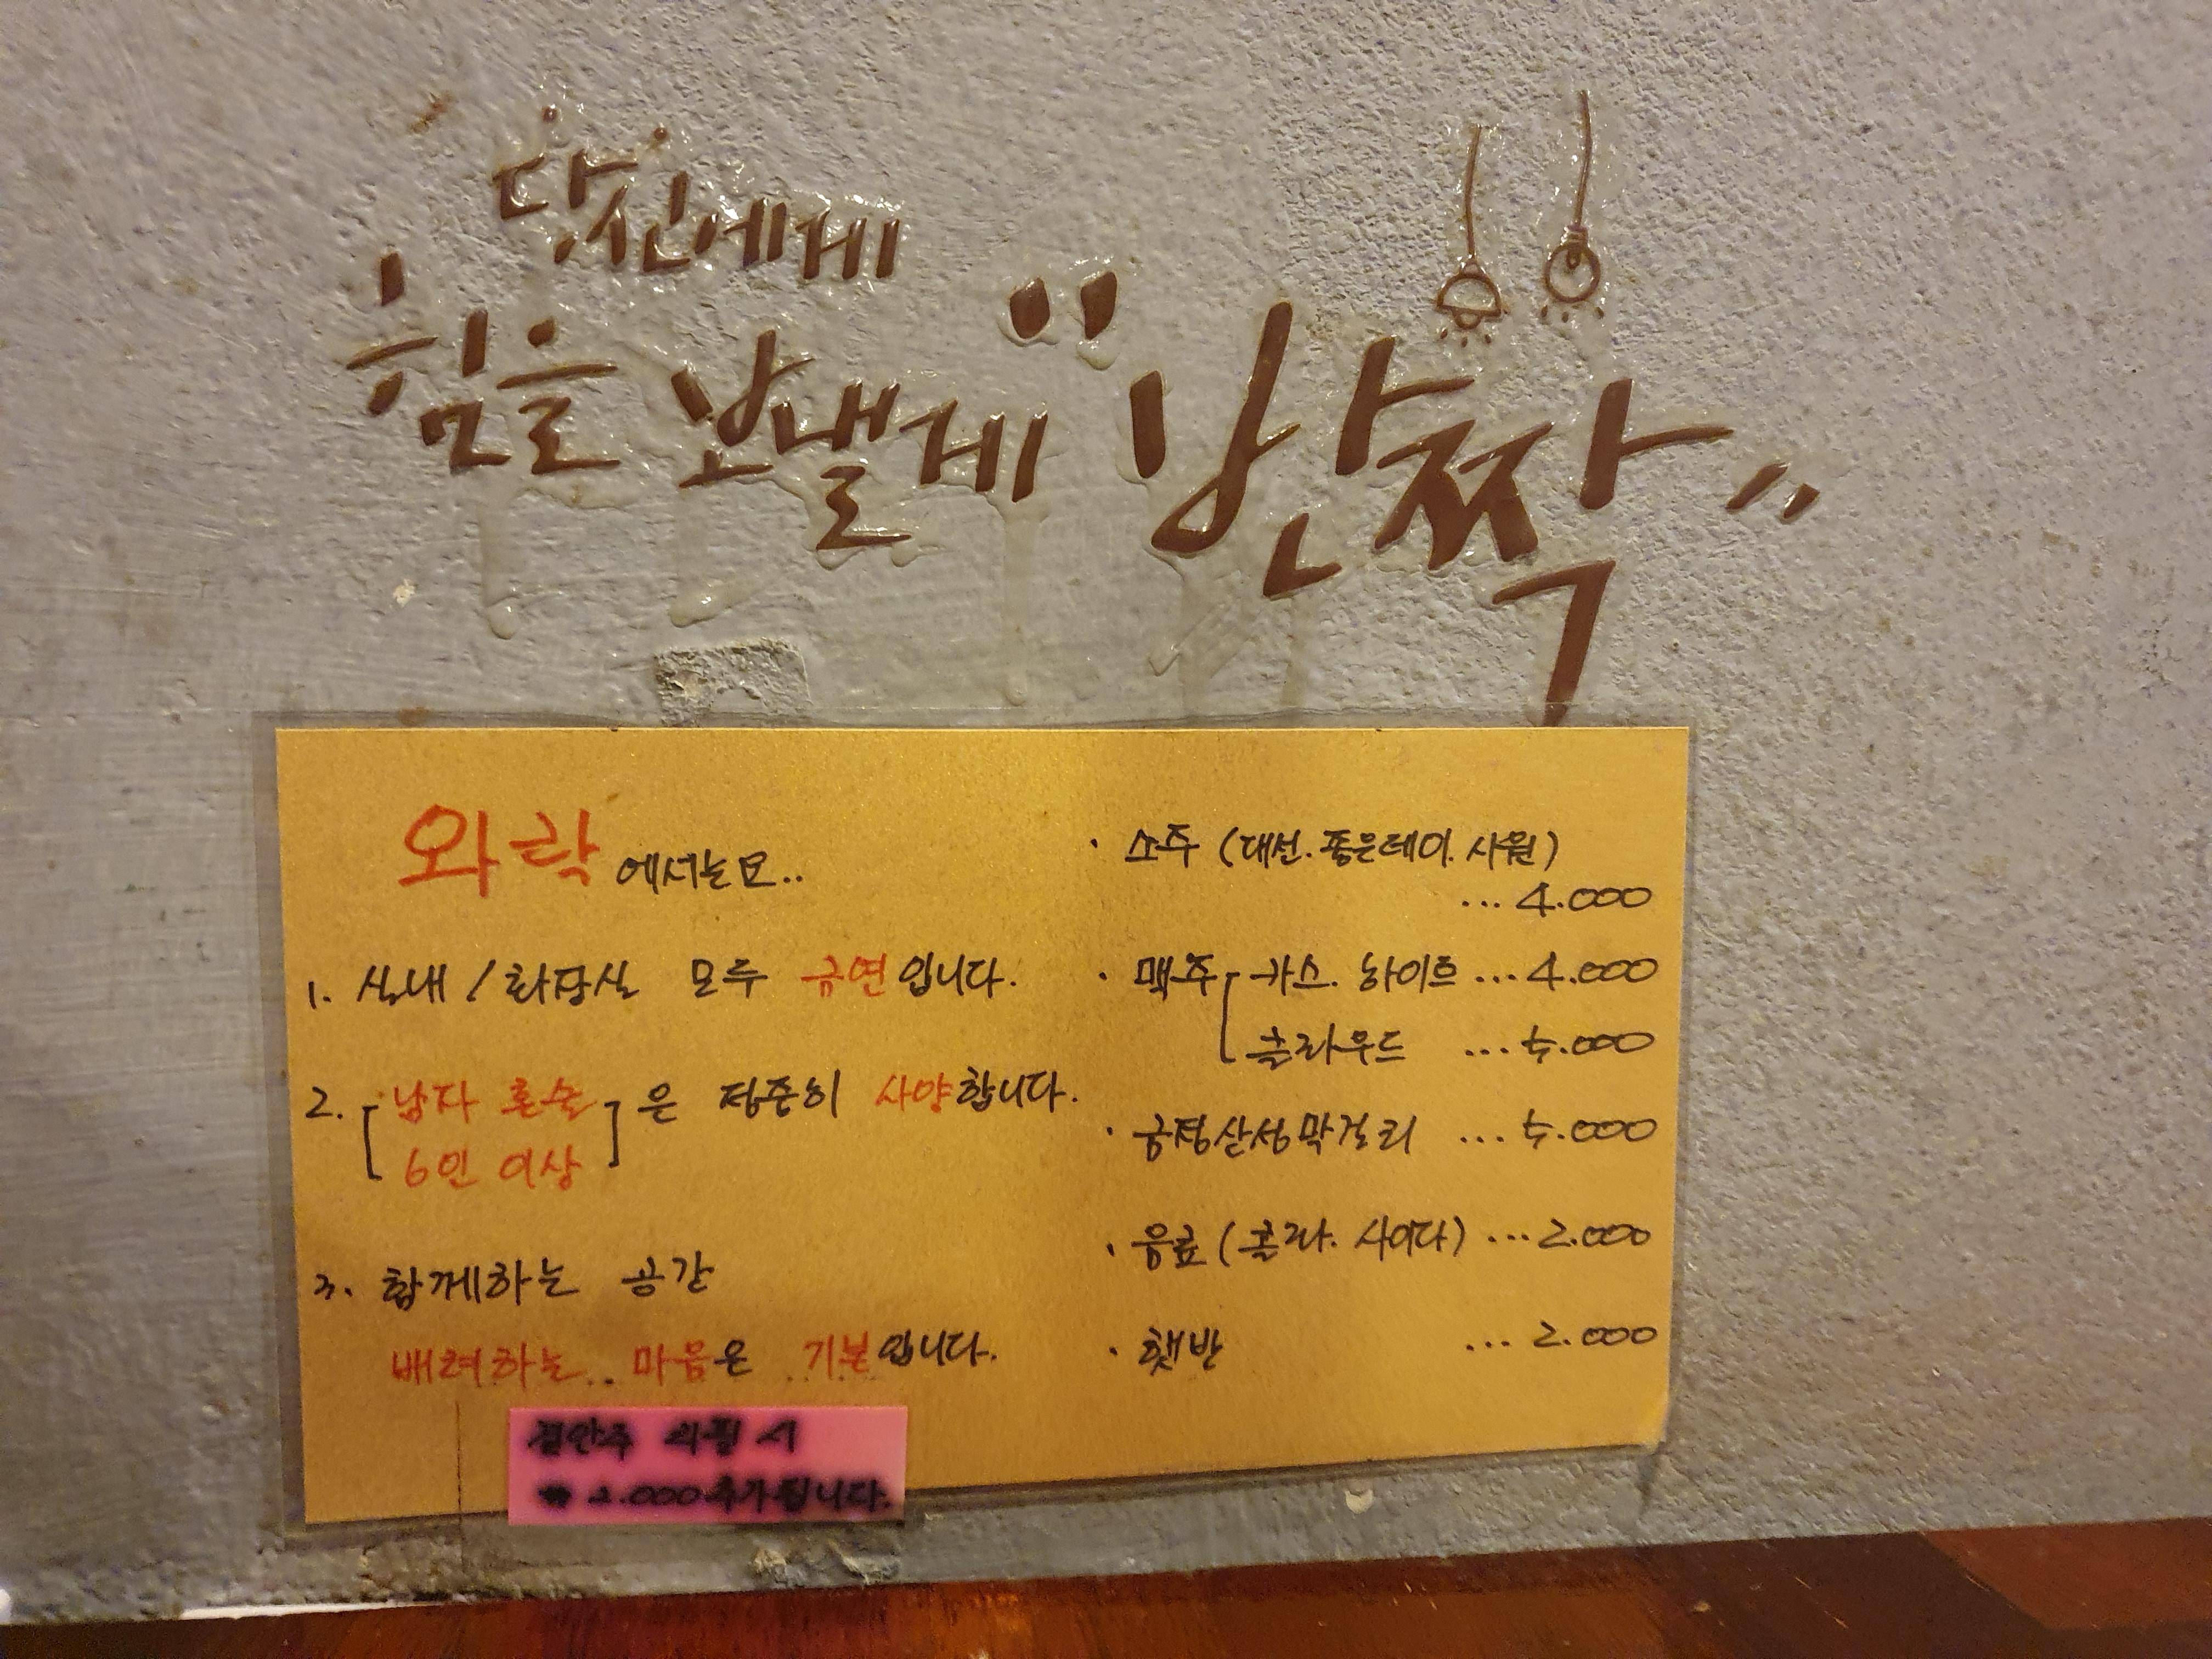 당신에게
힘을 보낼게 "반짝"
와락 에서는요..
1. 실내/화장실 모두 금연입니다.
2. [남자 혼술
6인 이상] 은 정중히 사양합니다.
3. 함께하는 공간
배려하는.. 마음은 ..기본입니다.
· 소주 (대선. 좋은데이. 시원)
... 4.000
· 맥주 [카스. 하이트 ... 4.000
클라우드 ... 5.000
· 금정산성막걸리 ... 5.000
· 음료 (콜라. 사이다) ... 2.000
· 햇반 ... 2.000
시
.000 추가됩니다.